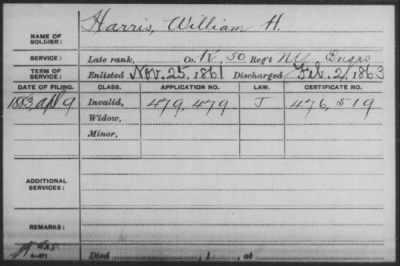 NAME OF SOLDIER: Harris, William H.
SERVICE: Late rank, Co. K, 50 Reg't NY Engrs
TERM OF SERVICE: Enlisted Nov. 25, 1861 Discharged Feb. 2, 1863
DATE OF FILING. CLASS. APPLICATION NO. LAW. CERTIFICATE NO.
1883, Apl 9 Invalid, 479,479 J 476,519
Widow,
Minor,
ADDITIONAL SERVICES:
REMARKS:
Died , 1 , at